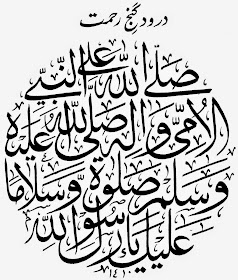 درود گنج رحمت
صَلَّى اللهُ عَلَى النَّبِيِّ
الْاُمِّيِّ وَاٰلِهٖ صَلَّى اللهُ عَلَيْهِ
وَسَلَّمَ صَلٰوةً وَّسَلَامًا
عَلَيْكَ يَا رَسُوْلَ اللهِ